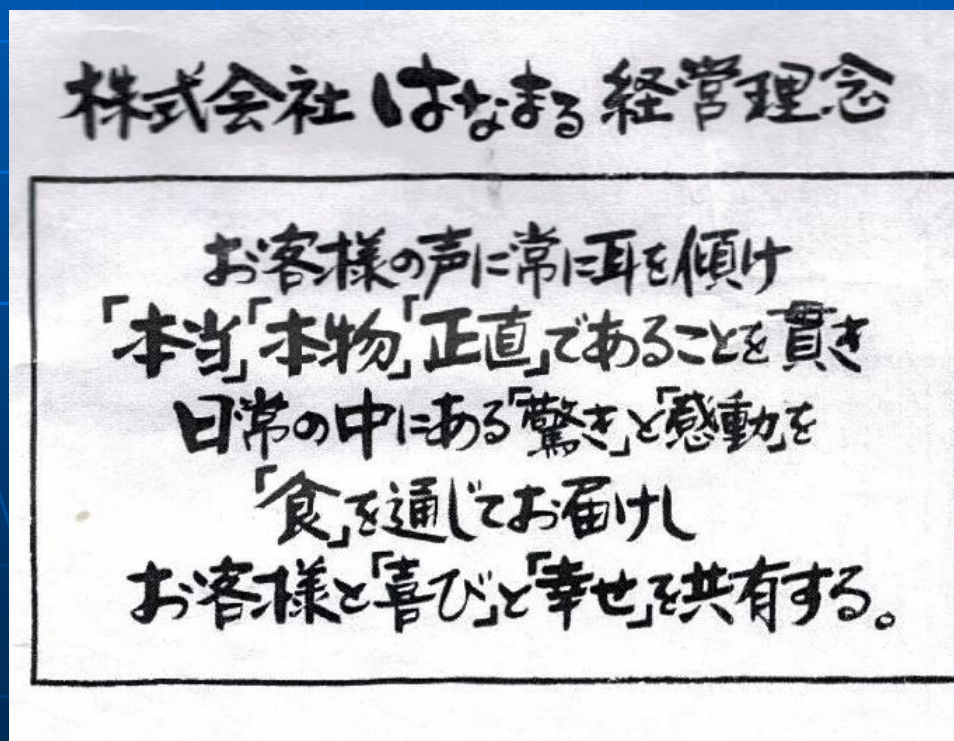 株式会社はなまる経営理念
お客様の声に常に耳を傾け
「本当」「本物」「正直」であることを貫き
日常の中にある「驚き」と「感動」を
「食」を通じてお届けし
お客様と「喜び」と「幸せ」を共有する。